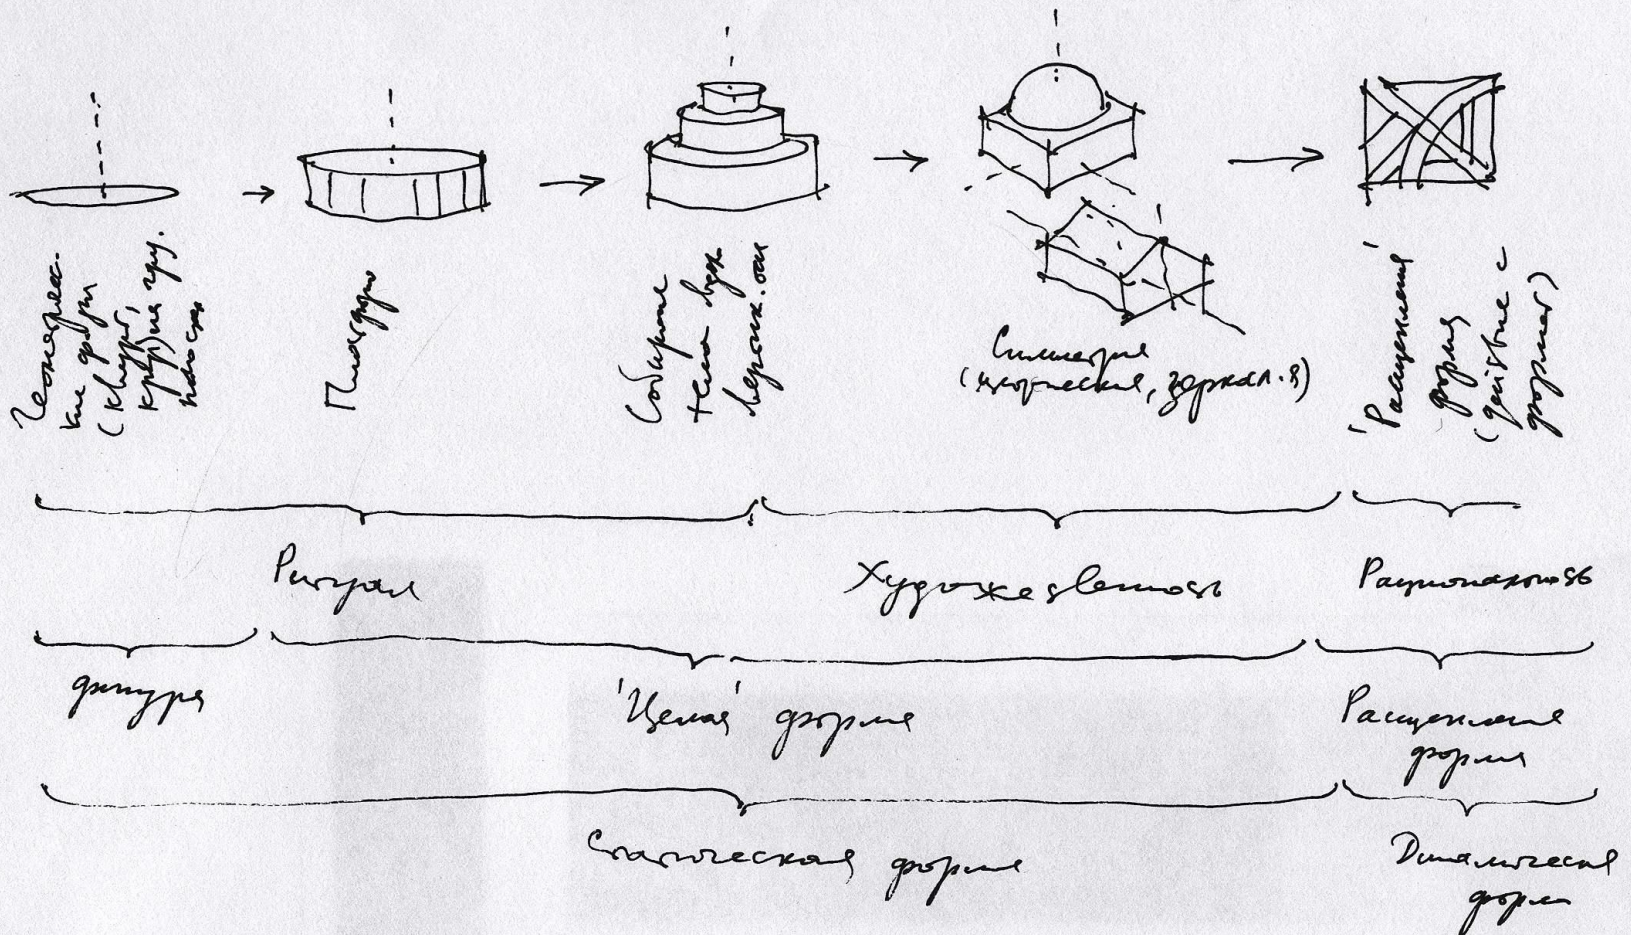 Геометричес.
кие
(квадрат,
круг) на
Платформа
Собирание
тела
вертик. оси
Симметрия
(        , зеркал.я)
'Расщепления'
форма
(действие с
формой)
Ритуал
Художественность
Рациональность
фигура
'Целая' форма
Расщепленная
форма
Статическая форма
Динамическая
форма